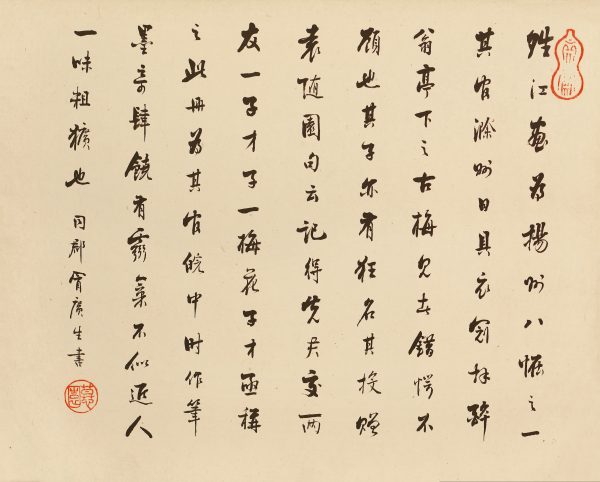 晴江畫為揚州八怪之一
其官滁州日具衣冠拜醉
翁亭下之古梅見者錯愕不
顧也其子亦有狂名其投贈
袁隨園句云記得先君交兩
友一子才子一梅花子才亟稱
之此冊為其官皖中時作筆
墨奇肆饒有霸氣不似近人
一味粗獷也 同郡冒廣生書